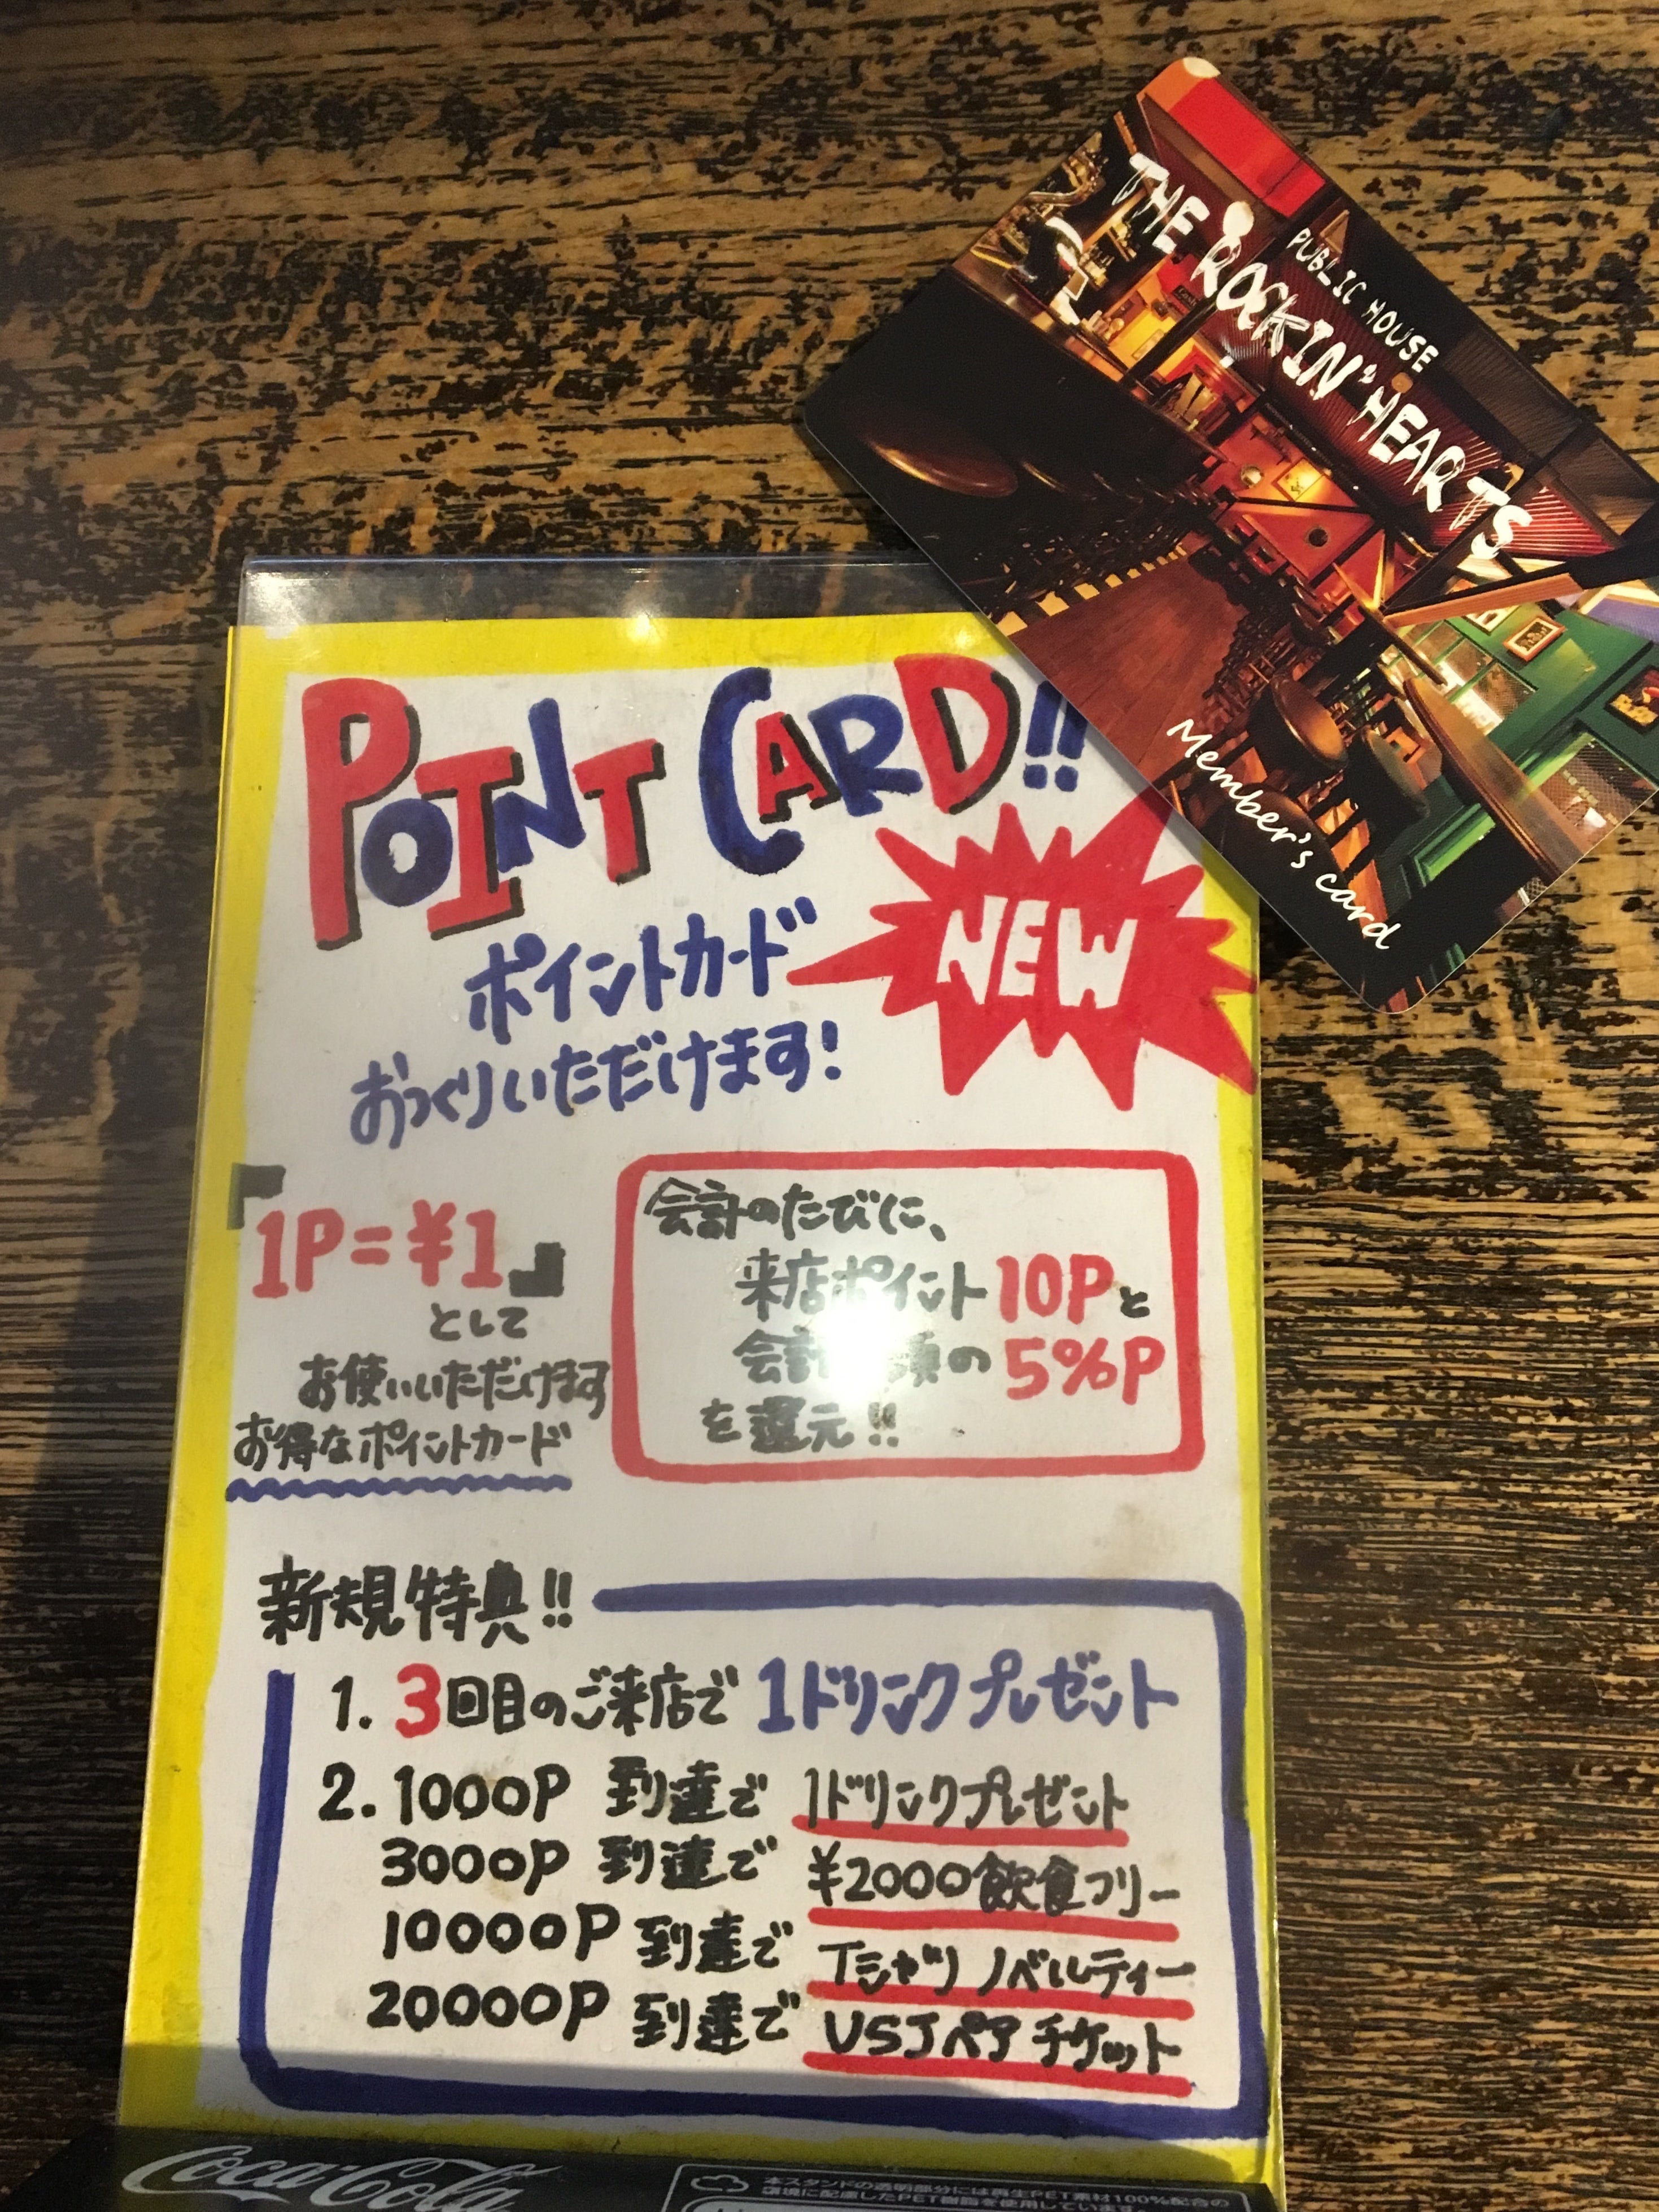 PUBLIC HOUSE
THE ROCKIN' HEARTS
Member's card
POINT CARD!!
NEW
ポイントカード
おつくりいただけます!
「1P=¥1」
として
お使いいただけます
お得なポイントカード
会計のたびに、
来店ポイント10Pと
会計 の5%P
を還元!!
新規特典!!
1. 3回目のご来店で 1ドリンクプレゼント
2. 1000P 到達で 1ドリンクプレゼント
3000P 到達で ¥2000飲食フリー
10000P 到達で Tシャツ ノベルティー
20000P 到達で USJペアチケット
Coca-Cola
本スタンドの透明部分には再生PET素材100%配合の
環境に配慮したPET樹脂を使用しています。